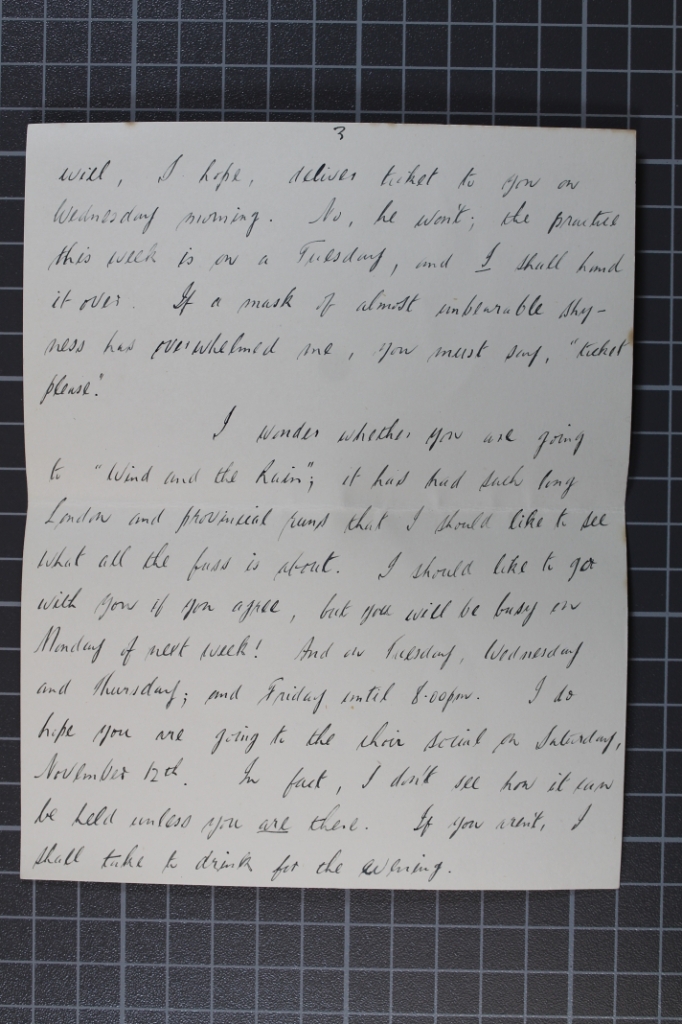 3
will, I hope, deliver ticket to you on
Wednesday morning. No, he won't; the practice
this week is on a Tuesday, and I shall hand
it over. If a mask of almost unbearable shy-
ness has overwhelmed me, you must say, "ticket
please".
I wonder whether you are going
to "Wind and the Rain"; it has had such long
London and provincial runs that I should like to see
what all the fuss is about. I should like to go
with you if you agree, but you will be busy on
Monday of next week! And on Tuesday, Wednesday
and Thursday; and Friday until 8.00pm. I do
hope you are going to the choir social on Saturday,
November 12th. In fact, I don't see how it can
be held unless you are there. If you aren't, I
shall take to drink for the evening.